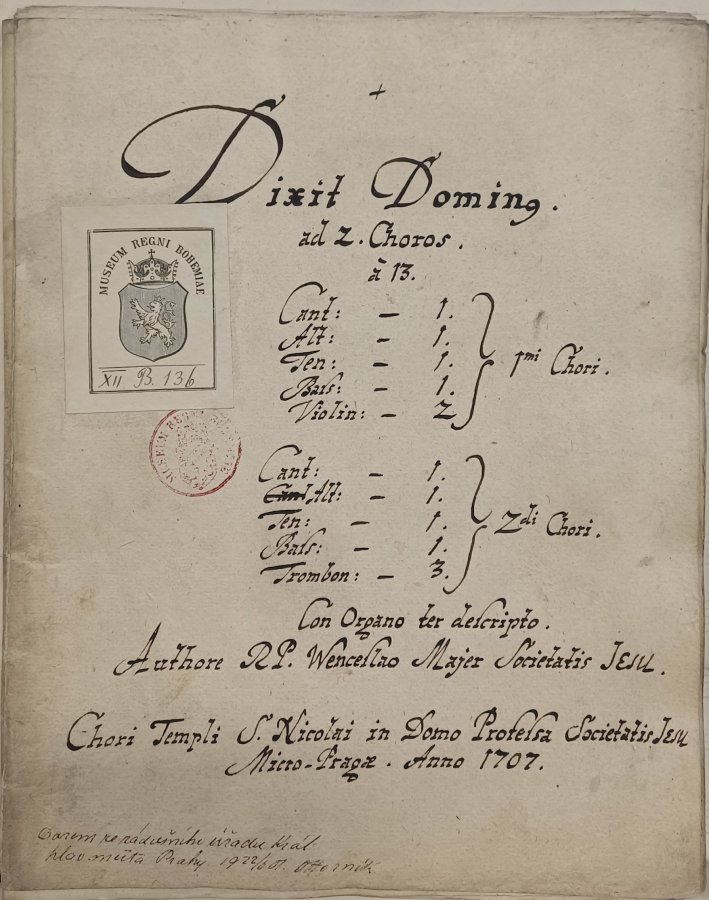 +
Dixit Dominꝯ.
ad 2. Choros.
à 13.
Cant: – 1.
Alt: – 1.
Ten: – 1.
Bass: – 1.
Violin: – 2
1mi Chori.
Cant: – 1.
Cant Alt: – 1.
Ten: – 1.
Bass: – 1.
Trombon: – 3.
2di Chori.
Con Organo ter descripto.
Authore RP. Wenceslao Majer Societatis JESU.
Chori Templi S. Nicolai in Domo Professa Societatis Jesu
Micro-Pragæ. Anno 1707.
MUSEUM REGNI BOHEMIAE
XII B. 136
MUSEUM REGNI
Darem ze zádušního úřadu král.
hlav. města Prahy, 19